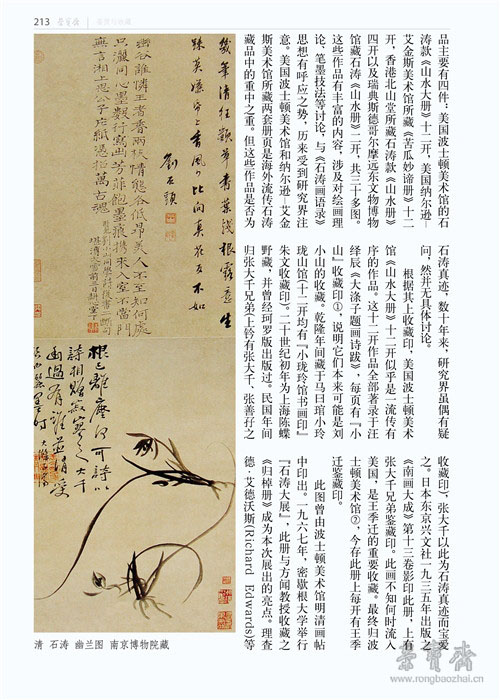 213 荣宝斋 鉴赏与收藏
品主要有四件，美国波士顿美术馆的石
涛款《山水大册》十二开，美国纳尔逊—
艾金斯美术馆所藏《苦瓜妙谛册》十二
开，香港北山堂所藏石涛款《山水册》
四开以及瑞典斯德哥尔摩远东文物博物
馆藏石涛《山水册》二开，共三十多图。
这些作品有丰富的内容，涉及对绘画理
论、笔墨技法等讨论，与《石涛画语录》
思想有呼应之势，历来受到研究界注
意。美国波士顿美术馆和纳尔逊—艾金
斯美术馆所藏两套册页是海外流传石涛
藏品中的重中之重。但这些作品是否为
石涛真迹，数十年来，研究界虽偶有疑
问，然并无具体讨论。
根据其上收藏印，美国波士顿美术
馆《山水大册》十二开似乎是一流传有
序的作品。这十二开作品全部著录于汪
绎辰《大涤子题画诗跋》，每页有『小
山』收藏印①，说明它们本来可能是刘
小山的收藏。乾隆年间藏于马曰琯小玲
珑山馆（十二开均有『小珑玲馆书画印』
朱文收藏印）。二十世纪初年为上海陈蝶
野藏，并曾经珂罗版出版过。民国年间
归张大千兄弟（上钤有张大千、张善孖之
收藏印，张大千以此为石涛真迹而宝爱
之。日本东京兴文社一九三五年出版之
《南画大成》第十三卷影印此册，上有
张大千兄弟鉴藏印。此画不知何时流入
美国，是王季迁的重要收藏。最终归波
士顿美术馆②，今存此册上每开有王季
迁鉴藏印。
此图曾由波士顿美术馆明清画帖
中印出。一九六七年，密歇根大学举行
『石涛大展』，此册与方闻教授收藏之
《归棹册》成为本次展出的亮点。理查
德·艾德沃斯（Richard Edwards）等
幾筆清狂顛草書葉淺根露意生
踈莫嫌紙上香風少比問真花反不如
劉石頭
幽谷誰憐王者香兩枝情態合低昂美人不至知何處
只灑同心墨數行寫出芳菲飽墨痕攜來入室不當門
無言湘上思公子片紙憑招萬古魂
根已離塵何可詩以
詩相贈寂寞之大千
幽過有誰並情受
大滌子
清 石涛 幽兰图 南京博物院藏
荣宝斋
www.rongbaozhai.cn